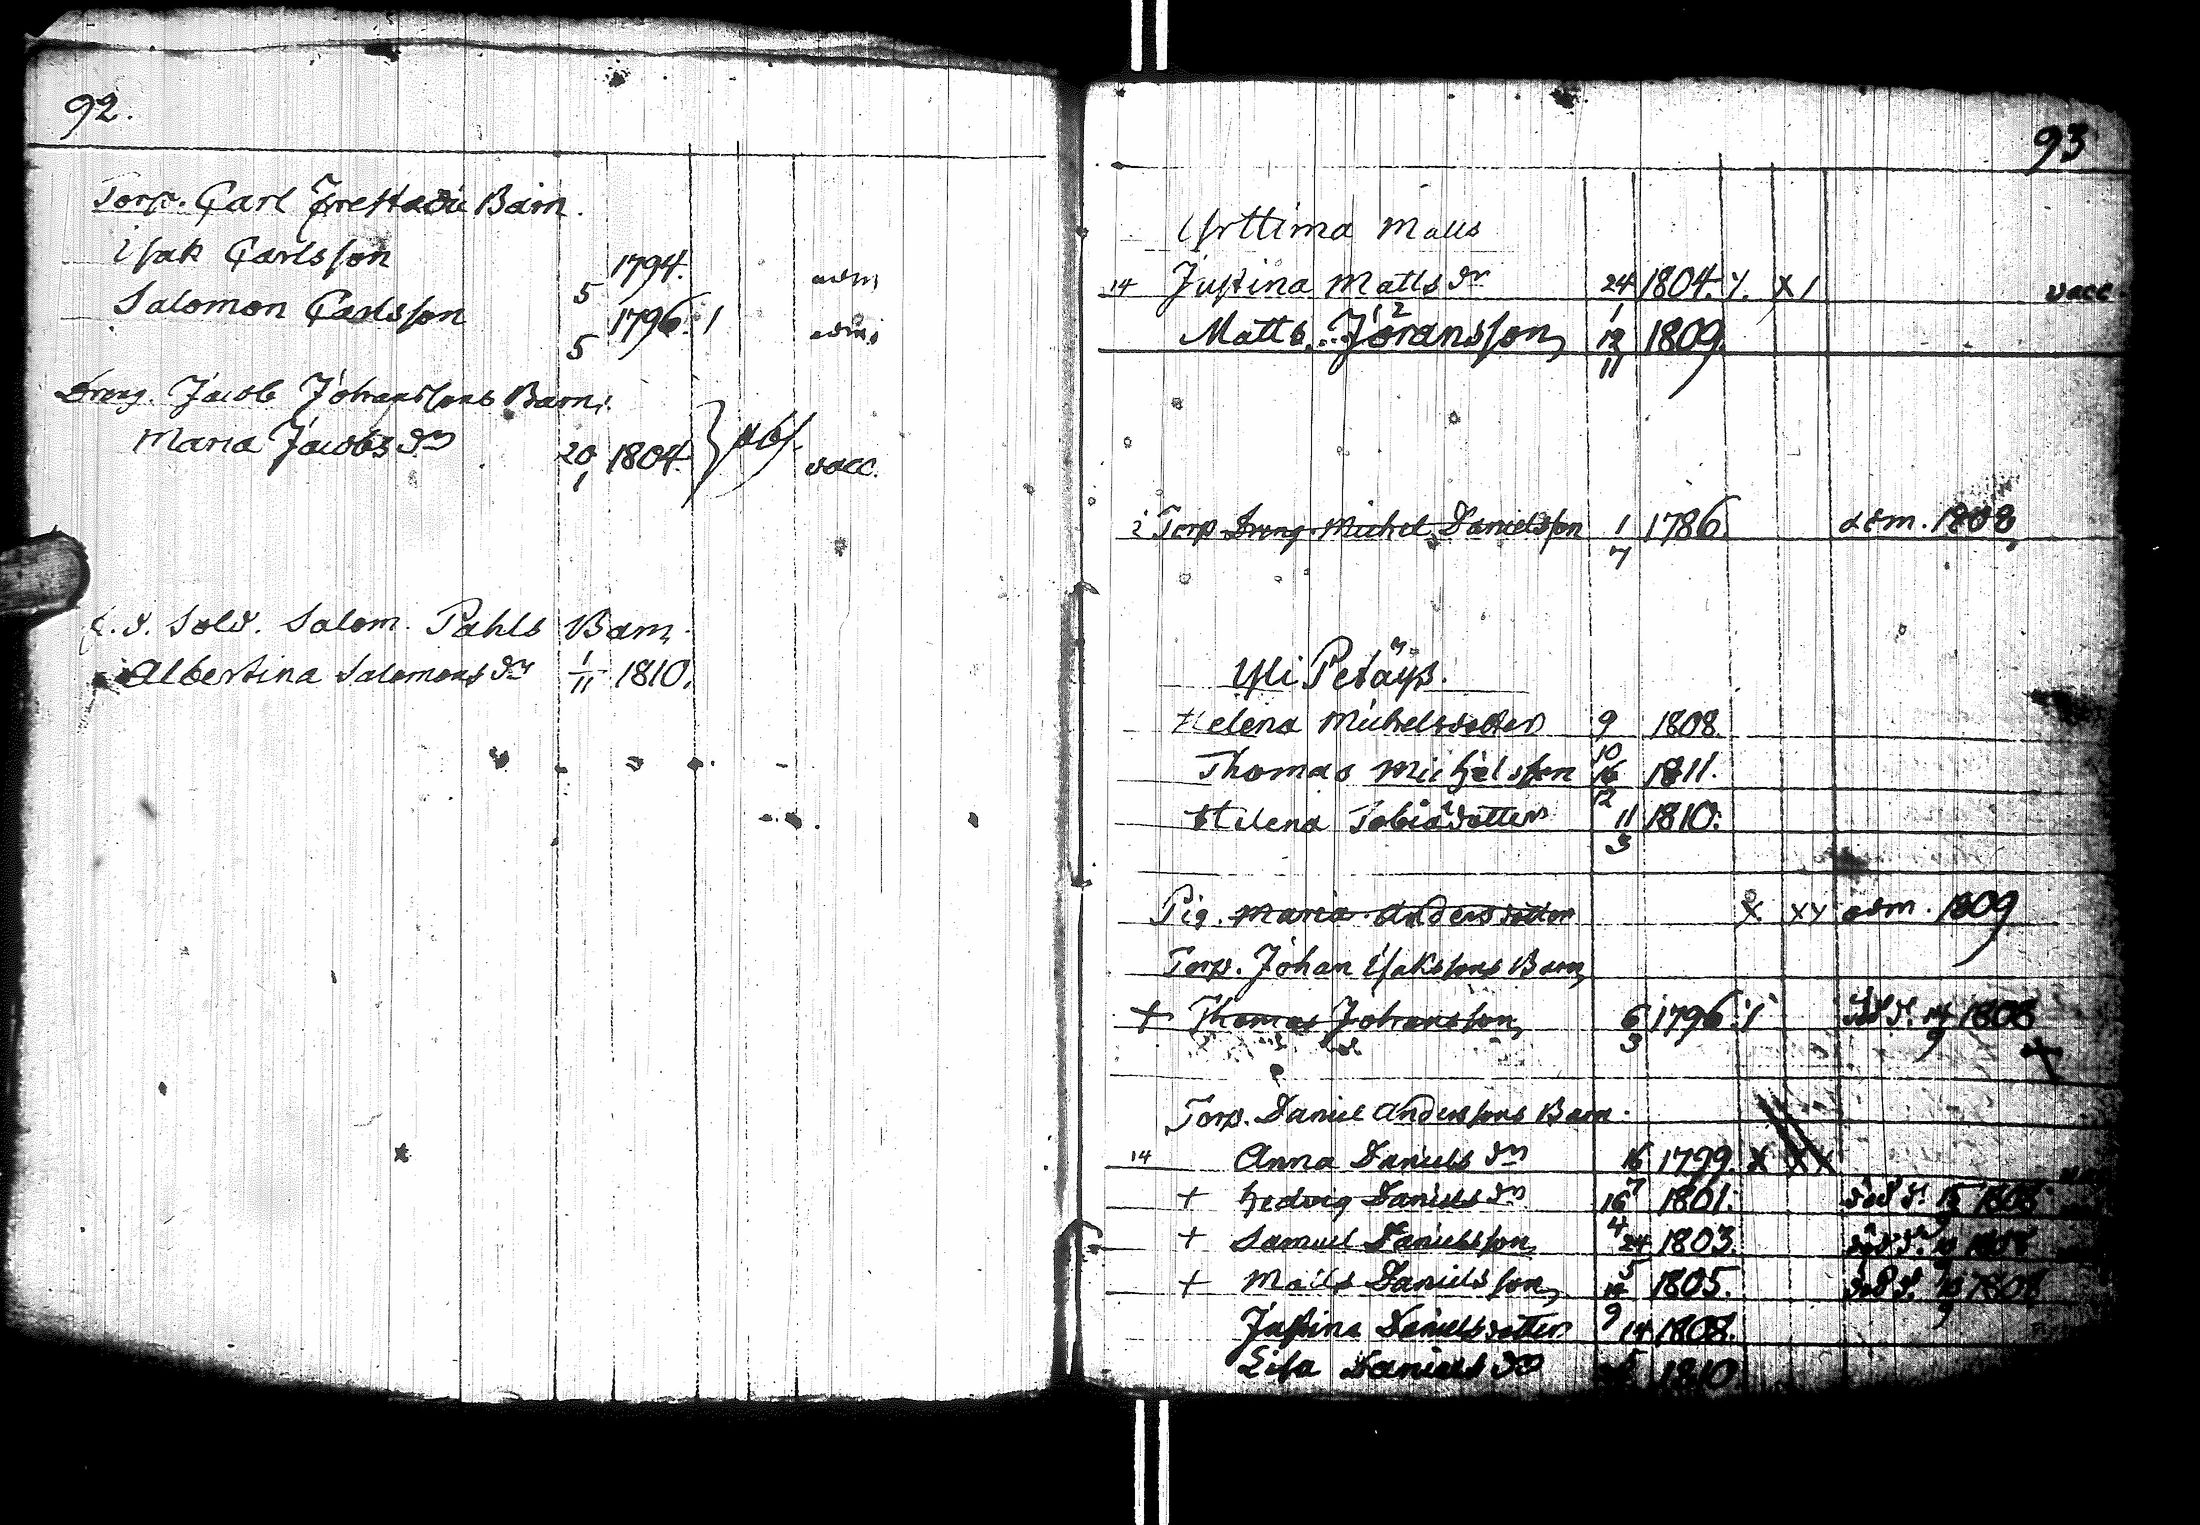 92.
Torp. Carl Barn.
Isak Carlsson 5 1794. adm
Salomon Carlsson 5 1796. 1 adm.
Dreng. Jacob Johanssons Barn.
Maria Jacobs dr 20/1 1804. abs. vacc.
Sold. Salom. Pahls Barn.
Albertina Salomons dr 1/11 1810.
93
Yrttimä Matts
14 Justina Matts dr 24/1 1804. X 1 vacc.
Matts Jöransson 12/11 1809.
Torp Dreng Michel Danielsson 1/7 1786. adm. 1808
Yli Petäys.
Helena Michelsdotter 9/10 1808.
Thomas Michelsson 16/12 1811.
Helena Tobiædotter 11/3 1810.
Pig. Maria Andersdotter X XX adm. 1809
Torp. Johan Isakssons Barn
+ Thomas Johansson 6/3 1796. 1 död d. 14/9 1808
+
Torp. Daniel Anderssons Barn.
14 Anna Daniels dr 16/7 1799. X XX
+ Hedvig Daniels dr 16/4 1801. död d.
+ Samuel Danielsson 24/5 1803. död d.
+ Matts Danielsson 14/9 1805. död d. 1808
Justina Danielsdotter 14 1808.
Lisa Daniels dr 1810.